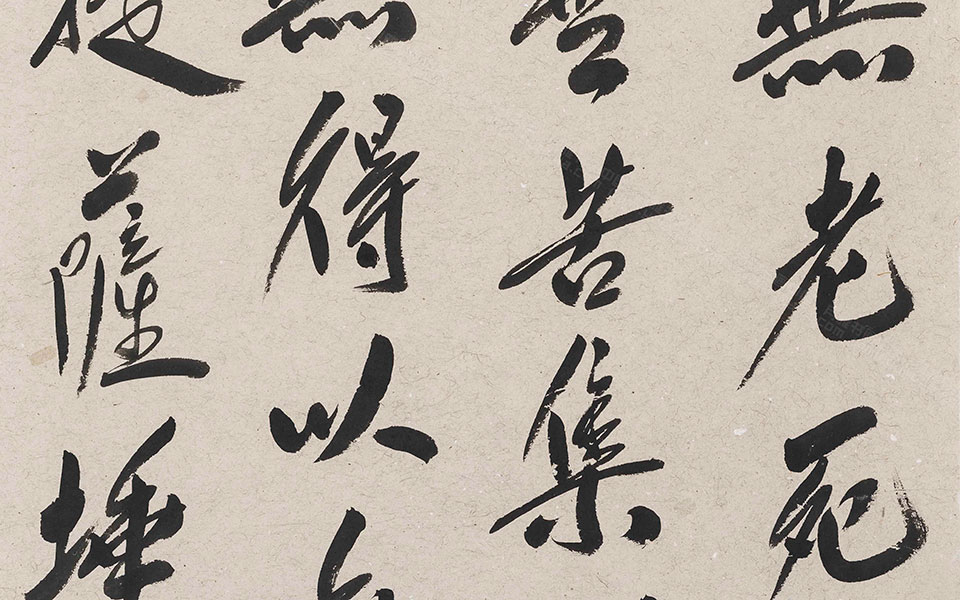 無老死
苦集
無得以
提薩埵